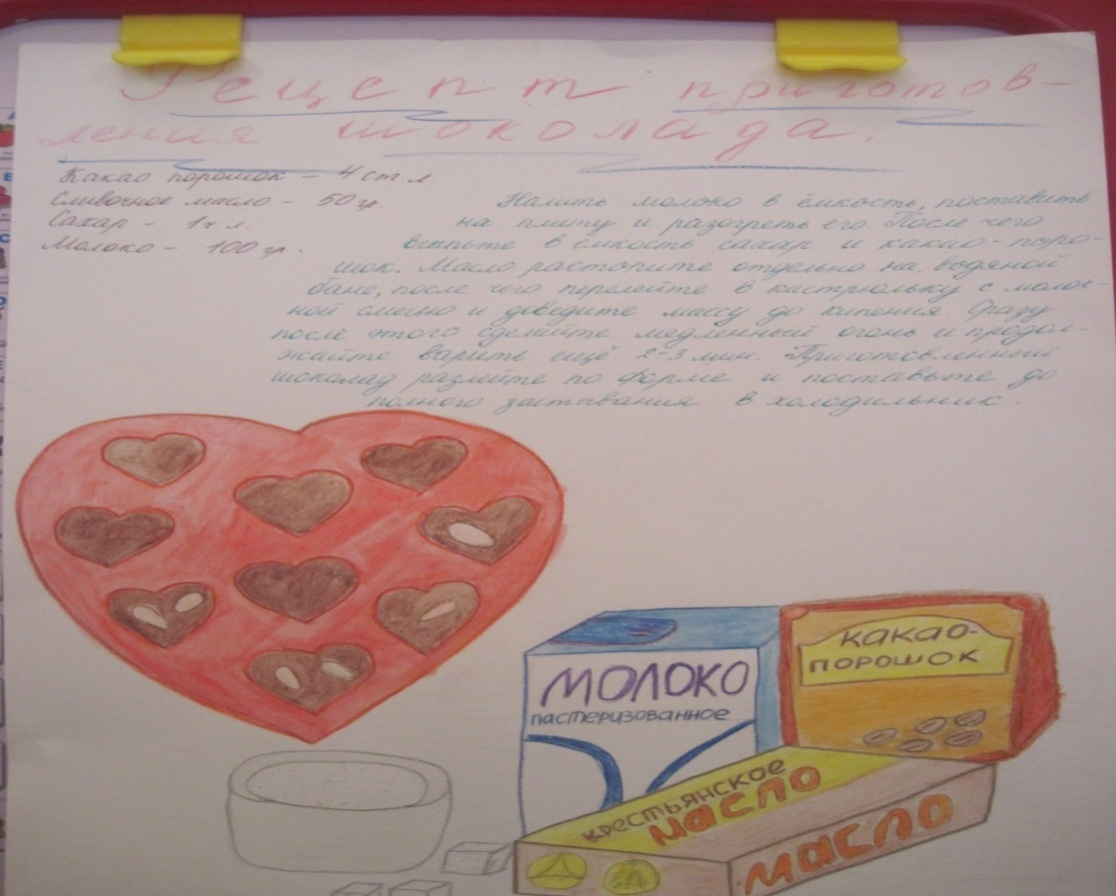 Рецепт приготов-
ления шоколада.
Какао порошок - 4 ст л.
Сливочное масло - 50 гр
Сахар - 1 ч л.
Молоко - 100 гр.
Налить молоко в ёмкость, поставить
на плиту и разогреть его. После чего
всыпьте в ёмкость сахар и какао-поро-
шок. Масло растопите отдельно на водяной
бане, после чего перелейте в кастрюльку с молоч-
ной смесью и доведите массу до кипения. Сразу
после этого сделайте медленный огонь и продол-
жайте варить ещё 2-3 мин. Приготовленный
шоколад разлейте по форме и поставьте до
полного застывания в холодильник.
МОЛОКО
пастеризованное
какао-
порошок
крестьянское
масло
масло